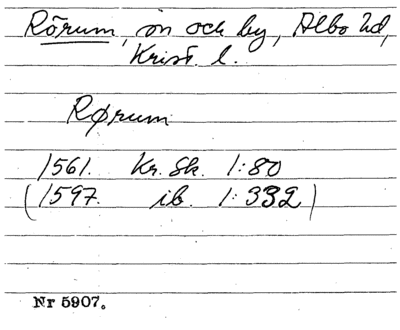 Rörum, sn och by, Albo hd,
Krist. l.
Rørum
1561. Kr. Sk. 1:80
(1597. ib. 1:332)
Nr 5907.